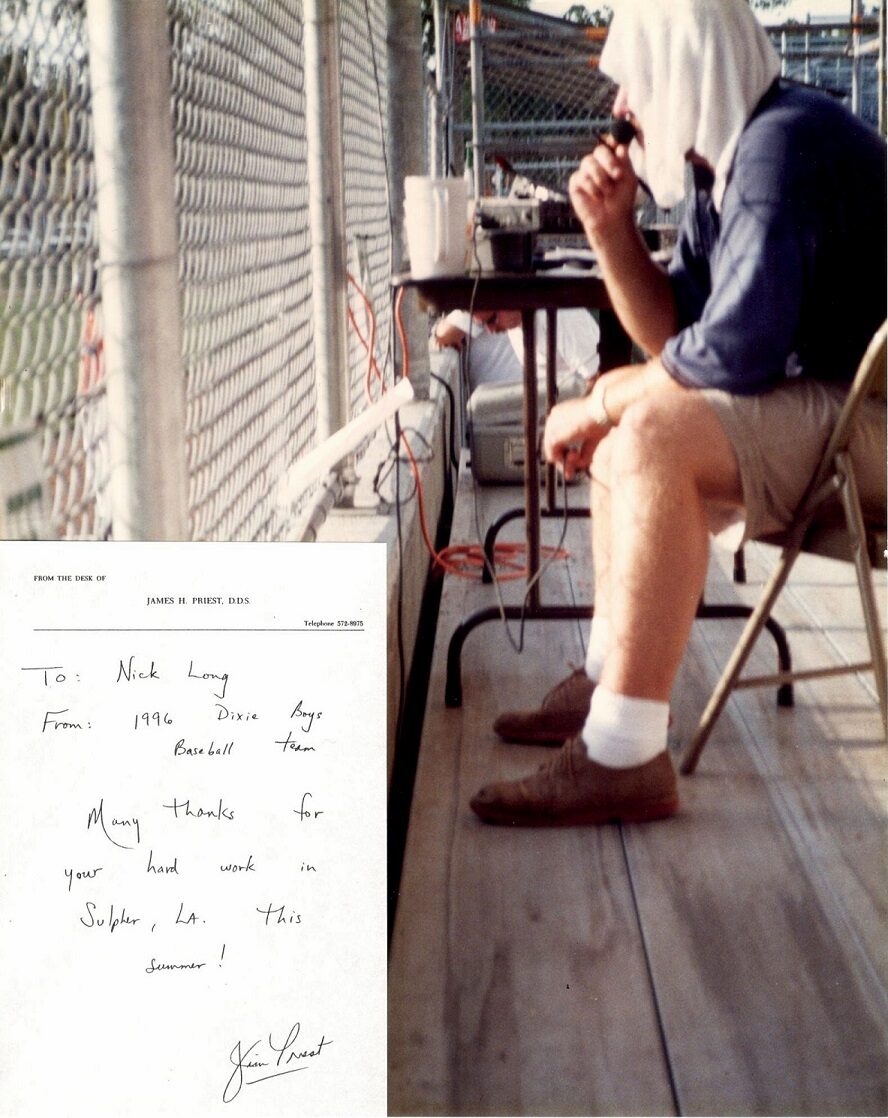 FROM THE DESK OF
JAMES H. PRIEST, D.D.S.
Telephone 572-8975
To: Nick Long
From: 1996 Dixie Boys
Baseball team
Many thanks for
your hard work in
Sulpher, LA. this
summer!
Jim Priest